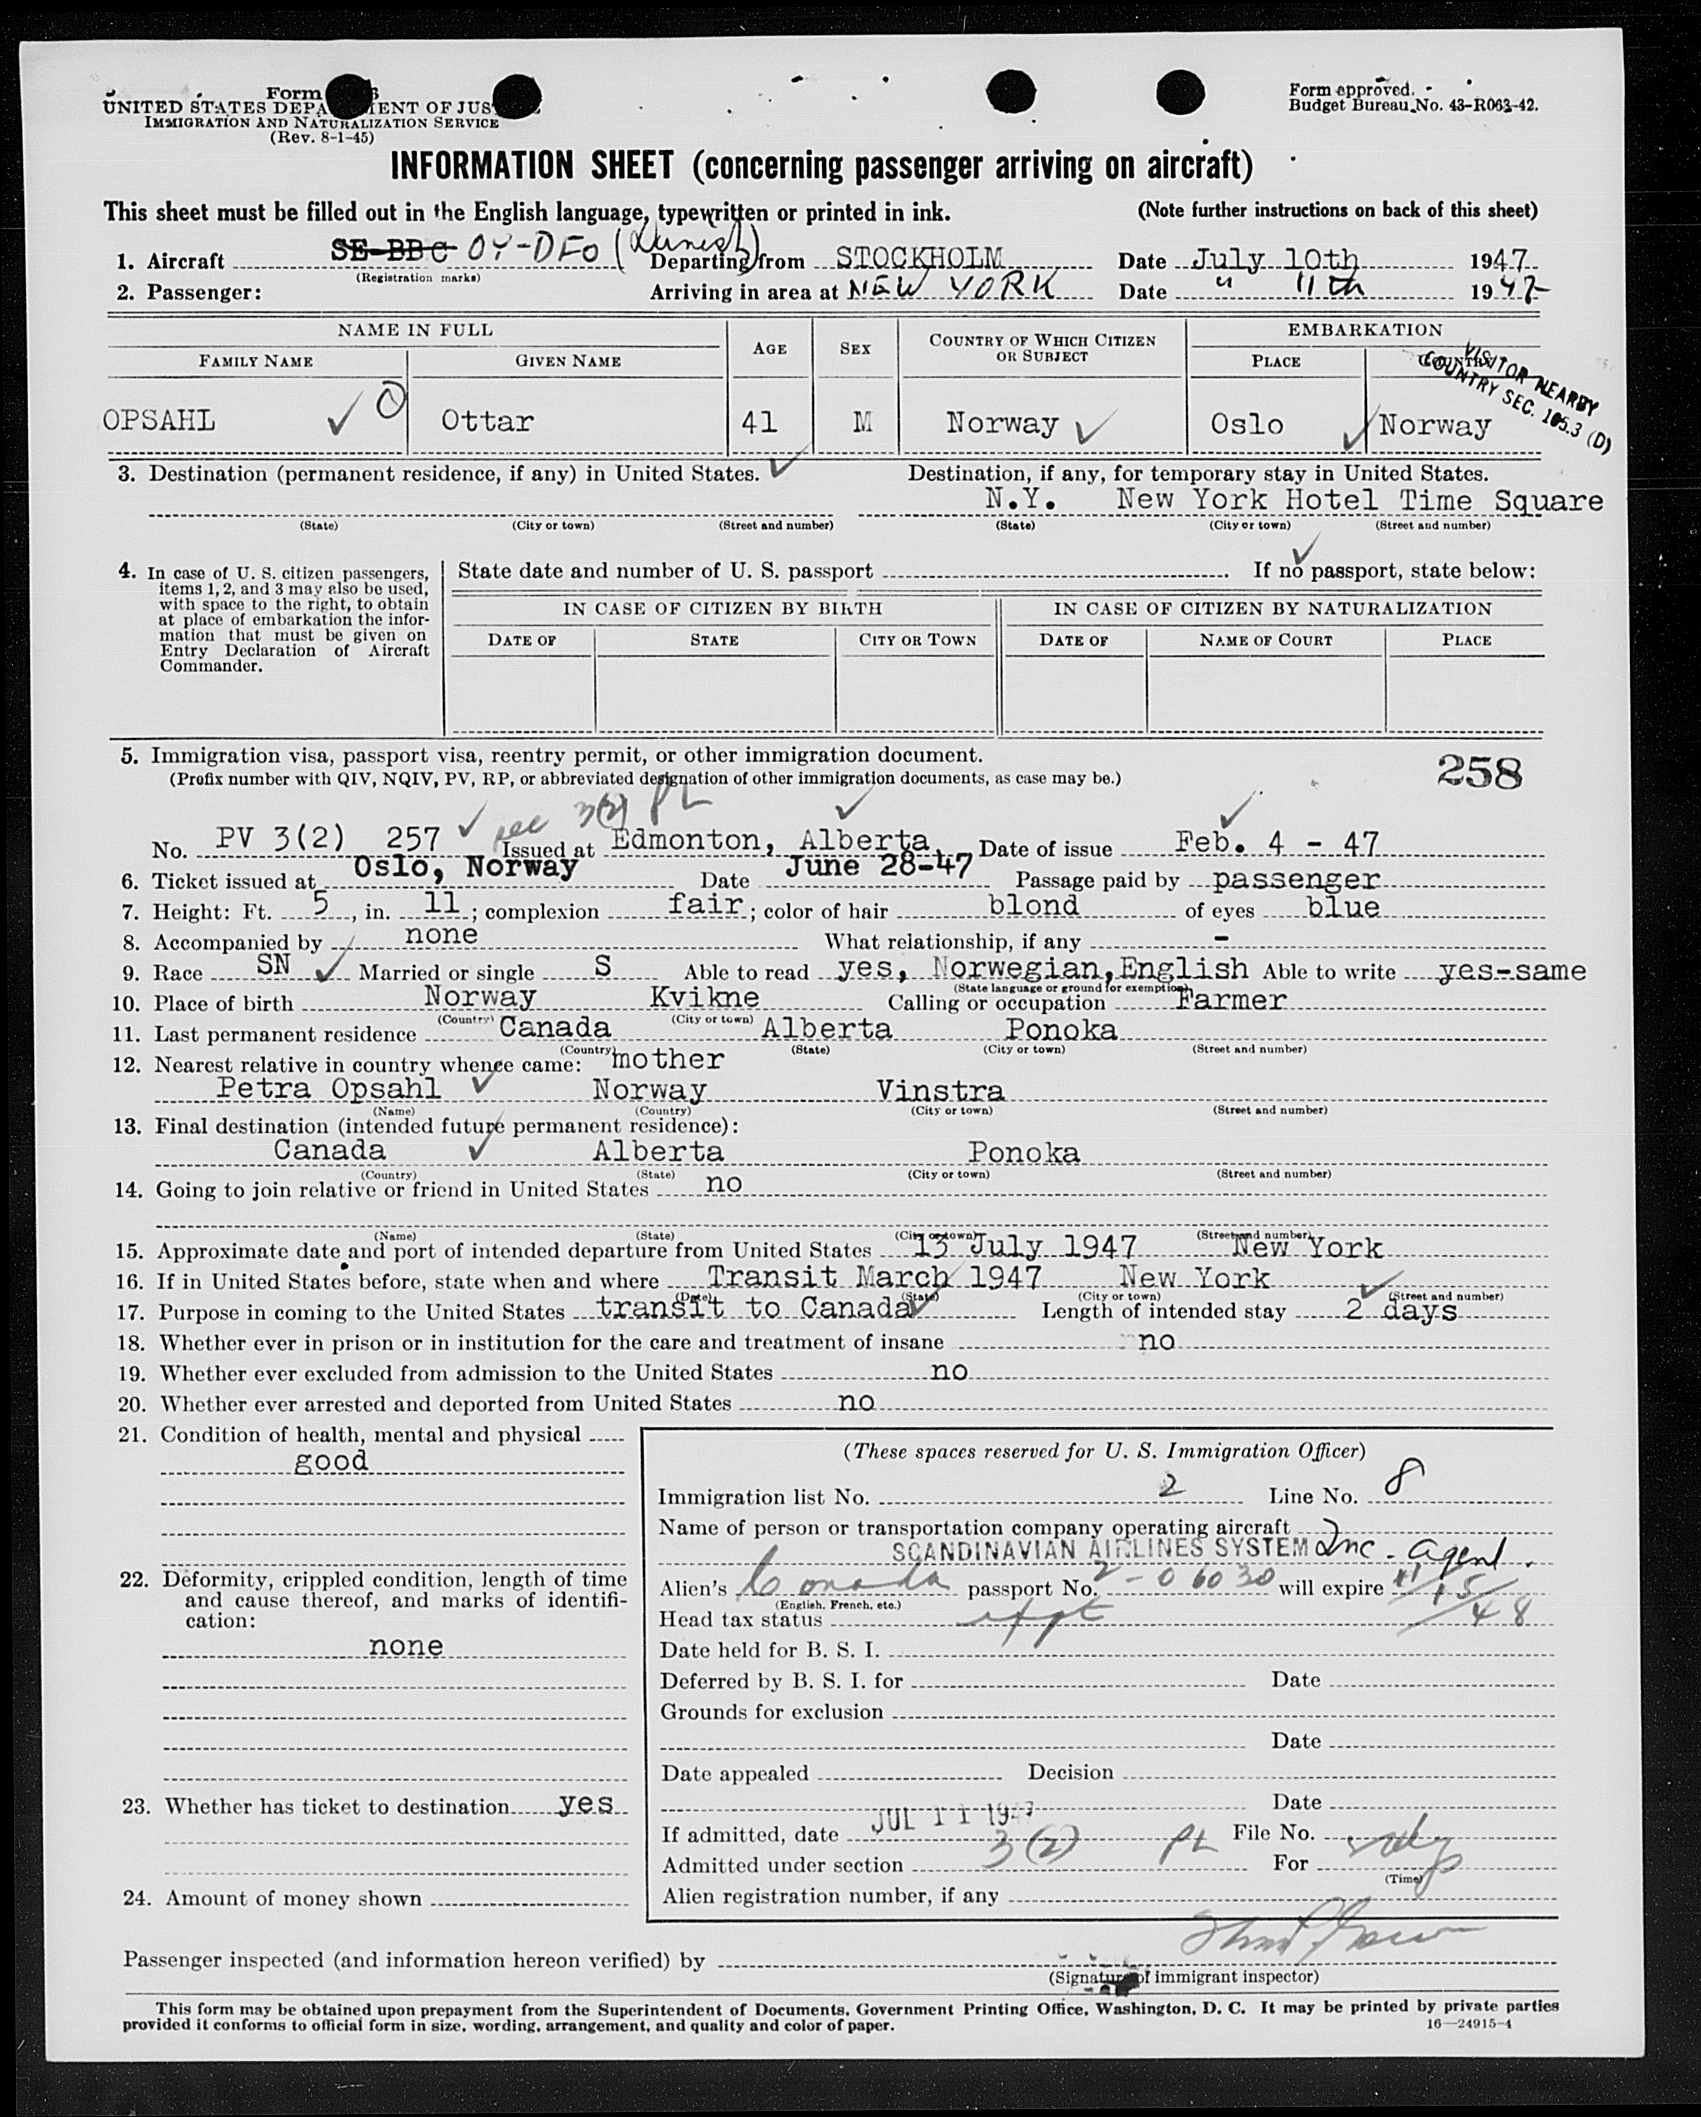 Form
UNITED STATES DEPARTMENT OF JUSTICE
IMMIGRATION AND NATURALIZATION SERVICE
(Rev. 8-1-45)
Form approved.
Budget Bureau No. 43-R063-42.
INFORMATION SHEET (concerning passenger arriving on aircraft)
This sheet must be filled out in the English language, typewritten or printed in ink.
(Note further instructions on back of this sheet)
1. Aircraft SE-BBC OY-DFO (Danish) Departing from STOCKHOLM Date July 10th 1947
(Registration marks)
2. Passenger: Arriving in area at NEW YORK Date " 11th 1947
NAME IN FULL AGE SEX COUNTRY OF WHICH CITIZEN OR SUBJECT EMBARKATION
FAMILY NAME GIVEN NAME PLACE COUNTRY
VISITOR NEARBY
COUNTRY SEC. 165.3 (D)
OPSAHL Ottar 41 M Norway Oslo Norway
3. Destination (permanent residence, if any) in United States. Destination, if any, for temporary stay in United States.
N.Y. New York Hotel Time Square
(State) (City or town) (Street and number) (State) (City or town) (Street and number)
4. In case of U. S. citizen passengers, items 1, 2, and 3 may also be used, with space to the right, to obtain at place of embarkation the information that must be given on Entry Declaration of Aircraft Commander.
State date and number of U. S. passport If no passport, state below:
IN CASE OF CITIZEN BY BIRTH IN CASE OF CITIZEN BY NATURALIZATION
DATE OF STATE CITY OR TOWN DATE OF NAME OF COURT PLACE
5. Immigration visa, passport visa, reentry permit, or other immigration document.
(Prefix number with QIV, NQIV, PV, RP, or abbreviated designation of other immigration documents, as case may be.)
258
see 3(2) PL
No. PV 3(2) 257 Issued at Edmonton, Alberta Date of issue Feb. 4 - 47
6. Ticket issued at Oslo, Norway Date June 28-47 Passage paid by passenger
7. Height: Ft. 5, in. 11; complexion fair; color of hair blond of eyes blue
8. Accompanied by none What relationship, if any -
9. Race SN Married or single S Able to read yes, Norwegian, English Able to write yes-same
(State language or ground for exemption)
10. Place of birth Norway Kvikne Calling or occupation Farmer
(Country) (City or town)
11. Last permanent residence Canada Alberta Ponoka
(Country) (State) (City or town) (Street and number)
12. Nearest relative in country whence came: mother
Petra Opsahl Norway Vinstra
(Name) (Country) (City or town) (Street and number)
13. Final destination (intended future permanent residence):
Canada Alberta Ponoka
(Country) (State) (City or town) (Street and number)
14. Going to join relative or friend in United States no
(Name) (State) (City or town) (Street and number)
15. Approximate date and port of intended departure from United States 13 July 1947 New York
16. If in United States before, state when and where Transit March 1947 New York
(Date) (State) (City or town) (Street and number)
17. Purpose in coming to the United States transit to Canada Length of intended stay 2 days
18. Whether ever in prison or in institution for the care and treatment of insane no
19. Whether ever excluded from admission to the United States no
20. Whether ever arrested and deported from United States no
21. Condition of health, mental and physical
good
22. Deformity, crippled condition, length of time and cause thereof, and marks of identification:
none
23. Whether has ticket to destination yes
24. Amount of money shown
(These spaces reserved for U. S. Immigration Officer)
Immigration list No. 2 Line No. 8
Name of person or transportation company operating aircraft
SCANDINAVIAN AIRLINES SYSTEM Inc. agent.
Alien's Canada passport No. 2-06030 will expire 11/15/48
(English, French, etc.)
Head tax status expt
Date held for B. S. I.
Deferred by B. S. I. for Date
Grounds for exclusion
Date
Date appealed Decision
Date
If admitted, date JUL 11 1947 File No.
Admitted under section 3(2) PL For
(Time)
Alien registration number, if any
Passenger inspected (and information hereon verified) by
(Signature of immigrant inspector)
This form may be obtained upon prepayment from the Superintendent of Documents, Government Printing Office, Washington, D. C. It may be printed by private parties
provided it conforms to official form in size, wording, arrangement, and quality and color of paper.
16—24915-4